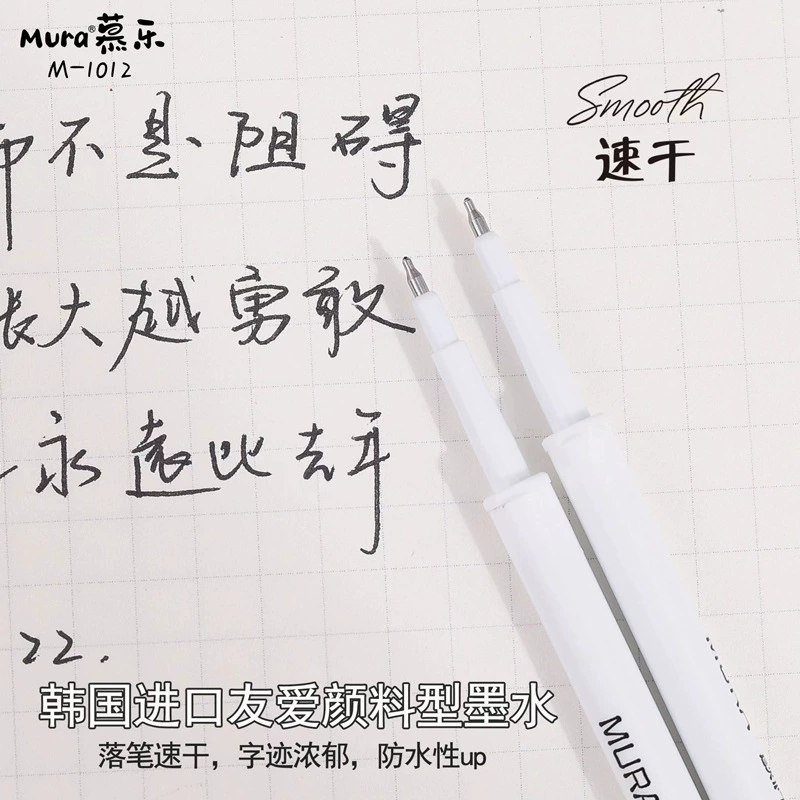 Mura®慕乐
M-1012
Smooth
速干
而不是阻碍
长大越勇敢
永远比去年
22.
韩国进口友爱颜料型墨水
落笔速干，字迹浓郁，防水性up
MURA